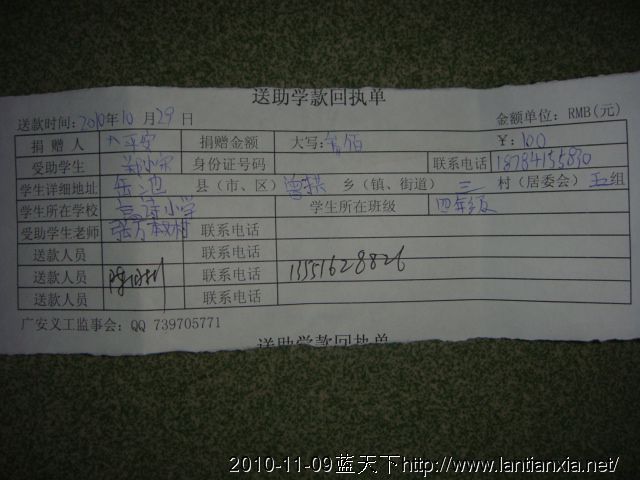 送助学款回执单
送款时间:2010年10月29日 金额单位：RMB(元)
捐赠人 平安 捐赠金额 大写: 佰 ¥: 100
受助学生 身份证号码 联系电话
学生详细地址 岳池 县（市、区） 乡（镇、街道） 三 村（居委会） 五 组
学生所在学校 小学 学生所在班级 四年级
受助学生老师 联系电话
送款人员 联系电话
送款人员 联系电话 13551628826
送款人员 联系电话
广安义工监事会：QQ 739705771
送助学款回执单
2010-11-09蓝天下http://www.lantianxia.net/